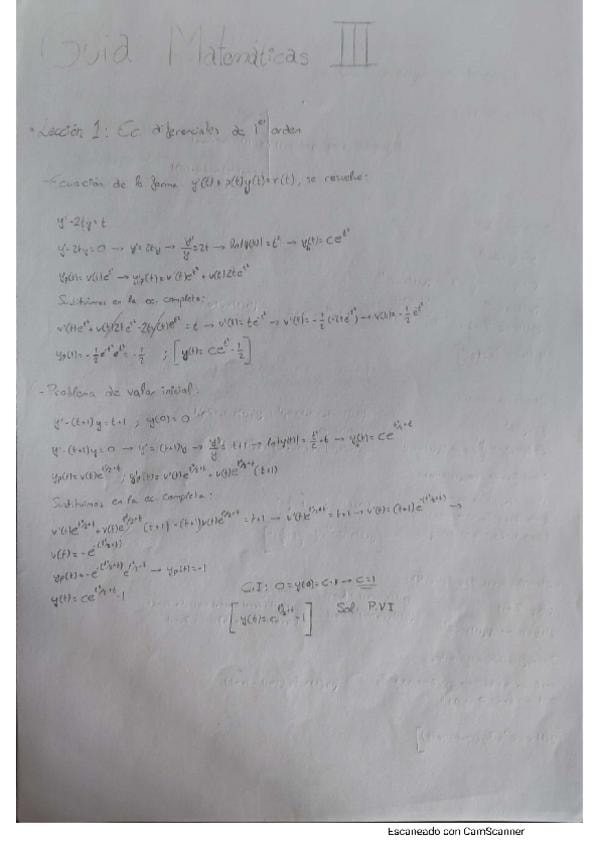 Guia Matemáticas III
• Lección 1: Ec diferenciales de 1er orden
- Ecuación de la forma y'(t) + p(t)y(t) = r(t), se resuelve:
y' - 2ty = t
y' - 2ty = 0 → y' = 2ty → y'/y = 2t → ln|y(t)| = t² → yₕ(t) = ce^(t²)
yp(t) = v(t)e^(t²) → y'p(t) = v'(t)e^(t²) + v(t)2te^(t²)
Sustituimos en la ec. completa:
v'(t)e^(t²) + v(t)2te^(t²) - 2tv(t)e^(t²) = t → v'(t) = te^(-t²) → v'(t) = -1/2(-2te^(-t²)) → v(t) = -1/2e^(-t²)
yp(t) = -1/2e^(-t²)e^(t²) = -1/2 ; [y(t) = ce^(t²) - 1/2]
- Problema de valor inicial:
y' - (t+1)y = t+1 ; y(0) = 0
y' - (t+1)y = 0 → y' = (t+1)y → y'/y = t+1 → ln|y(t)| = t²/2 + t → yₕ(t) = ce^(t²/2+t)
yp(t) = v(t)e^(t²/2+t) ; y'p(t) = v'(t)e^(t²/2+t) + v(t)e^(t²/2+t)(t+1)
Sustituimos en la ec. completa:
v'(t)e^(t²/2+t) + v(t)e^(t²/2+t)(t+1) - (t+1)v(t)e^(t²/2+t) = t+1 → v'(t)e^(t²/2+t) = t+1 → v'(t) = (t+1)e^(-(t²/2+t)) →
v(t) = -e^(-(t²/2+t))
yp(t) = -e^(-(t²/2+t))e^(t²/2+t) → yp(t) = -1
y(t) = ce^(t²/2+t) - 1
C.I: 0 = y(0) = c - 1 → c = 1
[y(t) = e^(t²/2+t) - 1] Sol. P.V.I
Escaneado con CamScanner